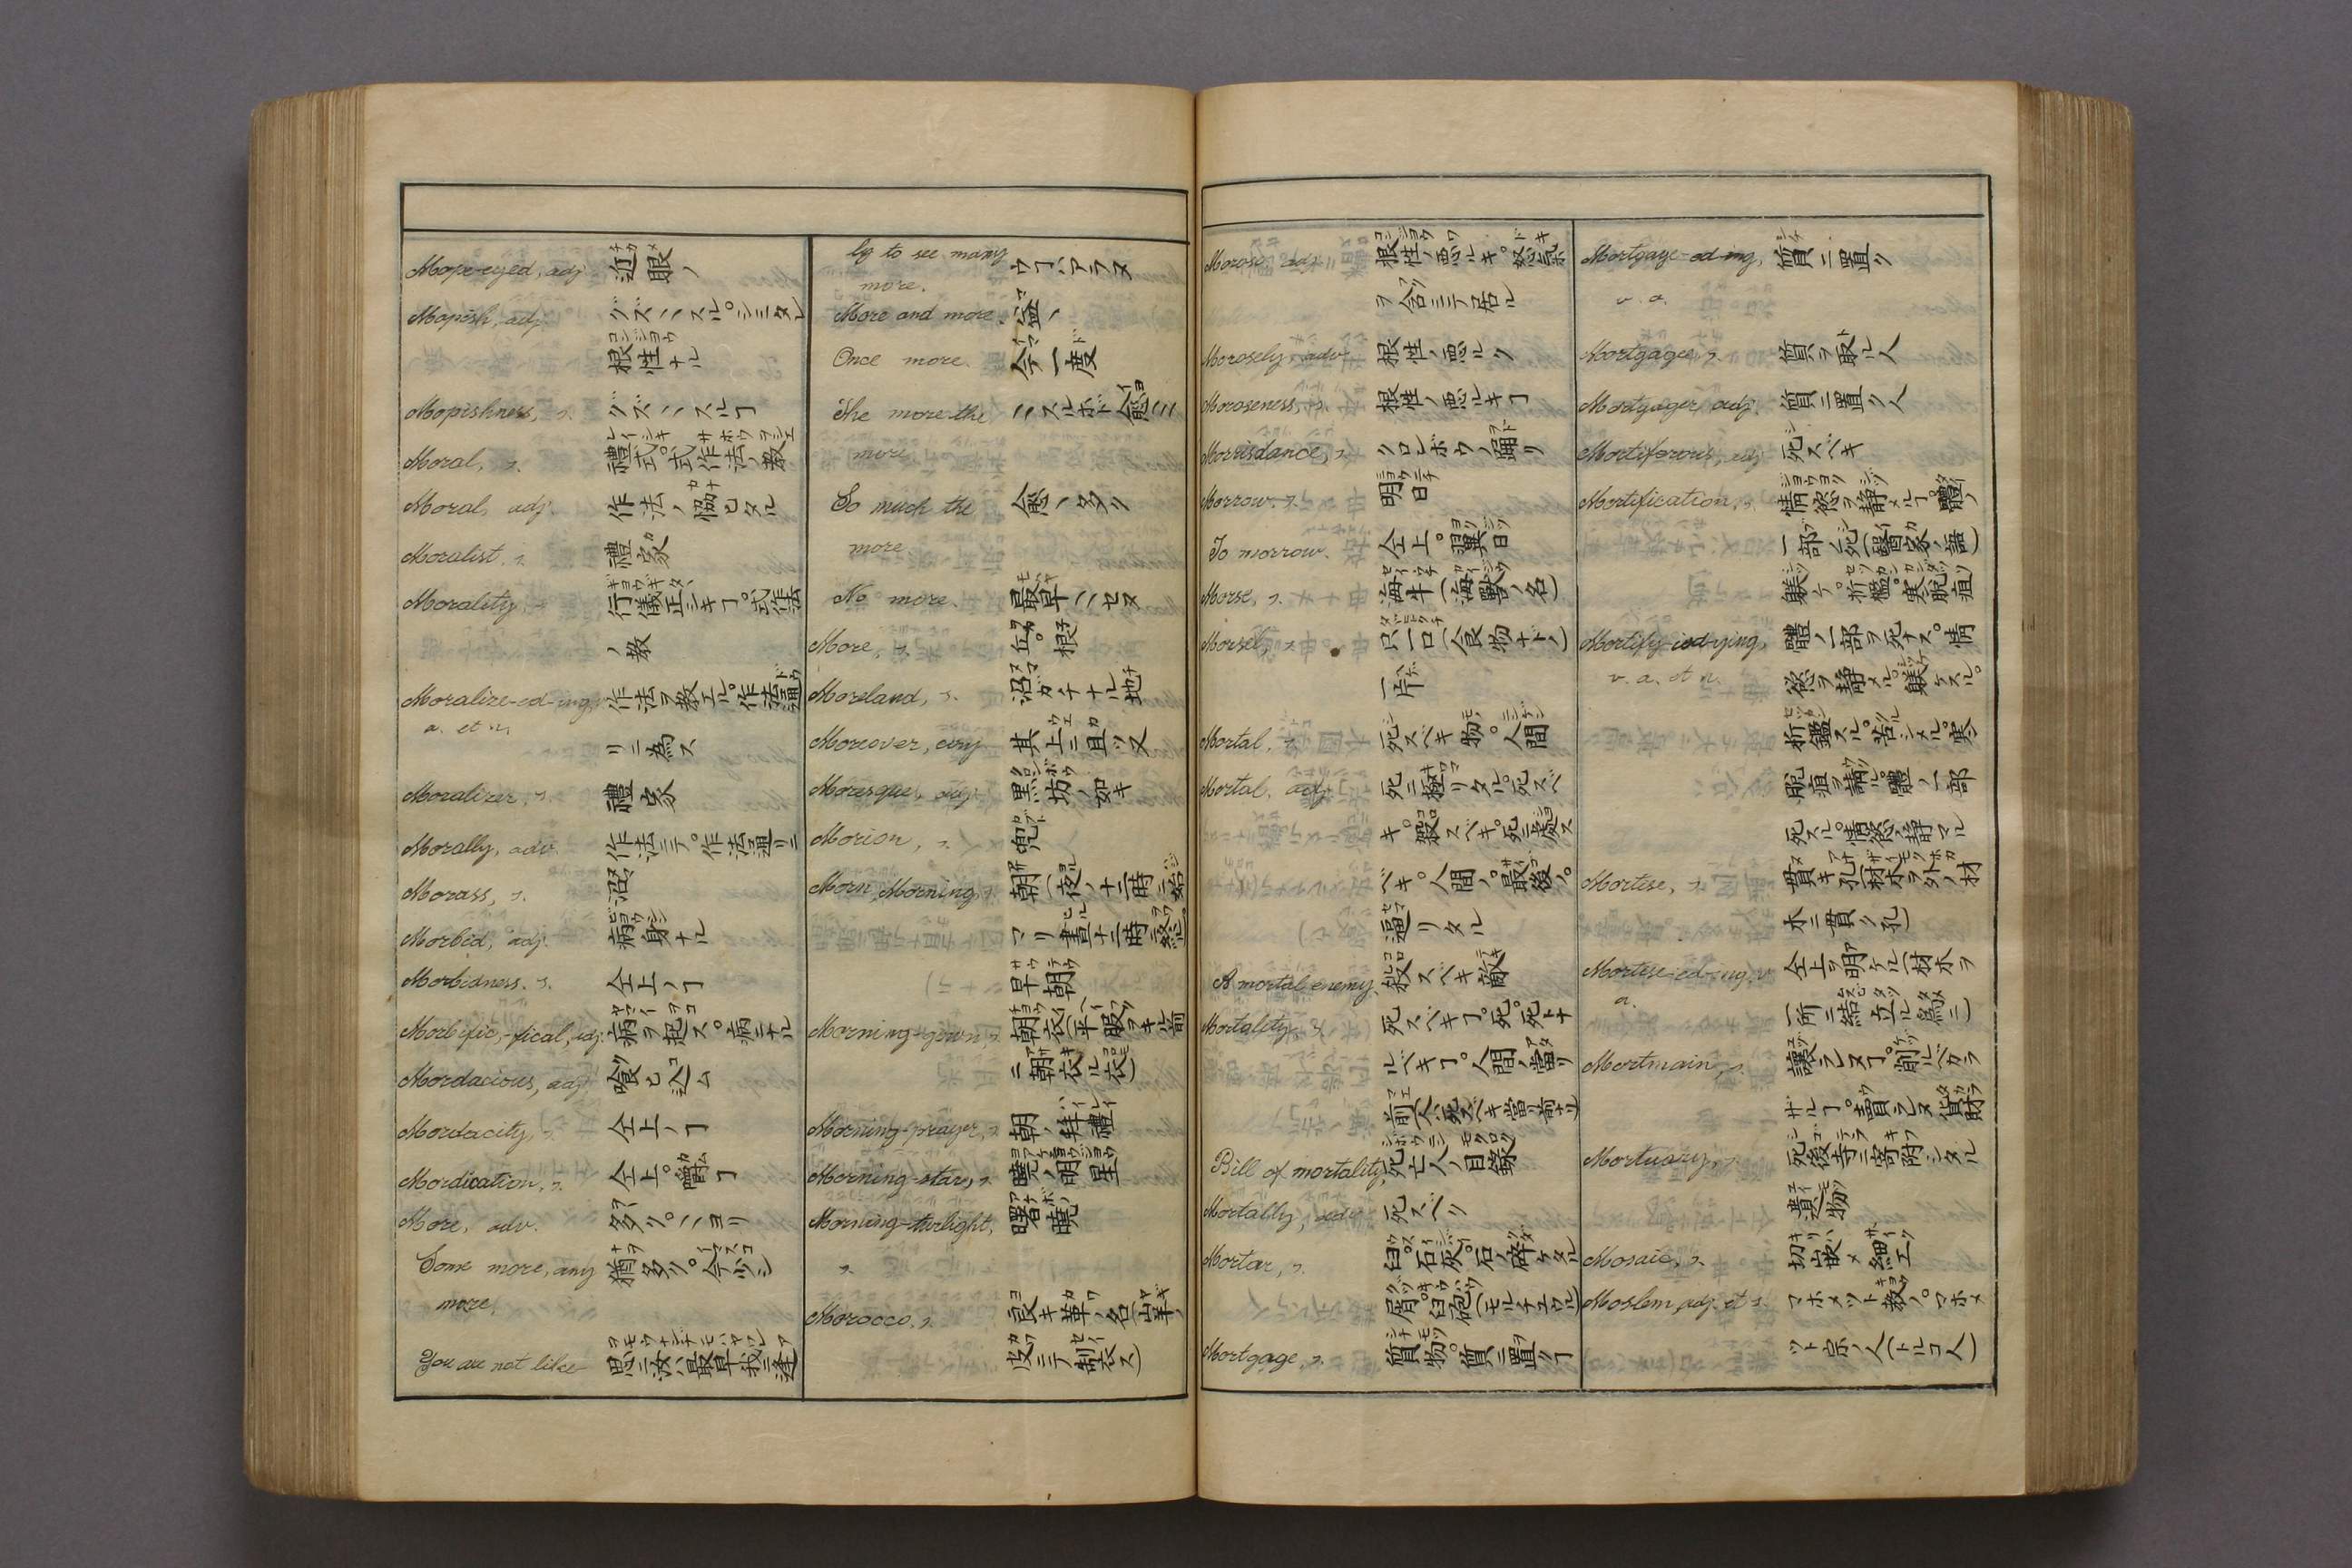 Mope-eyed, adj. 近眼ノ
Mopish, adj. グズヽヽスル。シミタレ
根性ナル
Mopishness, s. グズヽヽスルヿ
Moral, s. 禮式。式作法ノ教
Moral, adj. 作法ノ恊ヒタル
Moralist, s. 禮家
Morality 行儀正シキヿ。式作法
ノ教
Moralize-ed-ing, 作法ヲ教エル。作法通
a. et n. リニ為ス
Moralizer, s. 禮家
Morally, adv. 作法ニテ。作法通リニ
Morass, s. 沼
Morbid, adj. 病身ナル
Morbidness, s. 仝上ノヿ
Morbific,-fical, adj. 病ヲ起ス。病ニナル
Mordacious, adj. 喰ヒ込ム
Mordacity, s. 仝上ノヿ
Mordication, s. 仝上。嚼ムヿ
More, adv. 多ク。ヽヨリ
Some more, any 猶多ク。今少シ
more.
You are not like- 思ニ汝ハ最早我ニ逢
ly to see many ウヿハアラヌ
more.
More and more. 益ヽ
Once more. 今一度
The more the ヽスルホド愈ヽ
more
So much the 愈ヽ多ク
more
No more. 最早ヽセヌ
More, s. 丘。根
Moreland, s. 沼ガチナル地
Moreover, 其上ニ且ツ又
Moresque, adj. 黒坊ノ如キ
Morion, s. 兜
Morn, Morning, s. 朝(夜ノ十二時ニ始
マリ晝十二時ニ終ル。
早朝
Morning-gown, s. 朝衣(平服ヲキル前
ニ朝衣ル衣)
Morning-prayer, s. 朝ノ拜禮
Morning-star, s. 曉ノ明星
Morning-twilight, 曙曉
s.
Morocco, s. 良キ革ノ名(山羊ノ
皮ニテ制ス)
Morose, adj. 根性ノ悪ルキ。怒氣
ヲ含ミテ居ル
Morosely, adv. 根性ノ悪ルク
Moroseness, s. 根性ノ悪ルキヿ
Morrisdance, s. クロンボウノ踊リ
Morrow, s. 明日
To morrow. 仝上。翼日
Morse, s. 海牛(海獸ノ名)
Morsel, s. 只一口(食物ナドノ)
一片
Mortal, s. 死スベキ物。人間
Mortal, adj. 死ニ極リタル。死スベ
キ。殺スベキ。死ニ處ス
ベキ。人間ノ。最後ノ。
逼リタル
A mortal enemy, 殺スベキ敵
Mortality, s. 死スベキヿ。死。死ト
ルベキヿ。人間ノ當リ
前人ノ死スベキ當リ前ナリ
Bill of mortality, 死亡人ノ目錄
Mortally, adv. 死スベク
Mortar, s. 臼。石灰。石ノ碎ケタル
屑。臼砲(モルチエウル)
Mortgage, s. 質物。質ニ置クヿ
Mortgage-ed-ing, 質ニ置ク
v. a.
Mortgagee, s. 質ヲ取ル人
Mortgager, adj. 質ニ置ク人
Mortiferous, adj. 死スベキ
Mortification, s. 情慾ヲ静メルヿ。體ノ
一部ノ死(醫家ノ語)
躾ケ。折檻。寒脱疽
Mortify-ied-ying, 體ノ一部ヲ死ナス。情
v. a. et n. 慾ヲ静メル。躾ケスル。
折鑑スル。苦シメル。寒
脱疽ヲ講ル。體ノ一部
死スル。情慾ノ静マル
Mortise, s. 貫キ孔(材木ヲ外ノ材
木ニ貫ク孔)
Mortise-ed-ing, v. 仝上ヲ明ケル(材木ヲ
a. 一所ニ結立ル為ニ)
Mortmain, s. 譲ラレヌヿ。削ルベカラ
ザルヿ。賣ラレヌ貨財
Mortuary, s. 死後寺ニ寄附シタル
遺物
Mosaic, s. 切嵌メ細工
Moslem, adj. et s. マホメット教ノ。マホメ
ット宗ノ人(トルコ人)